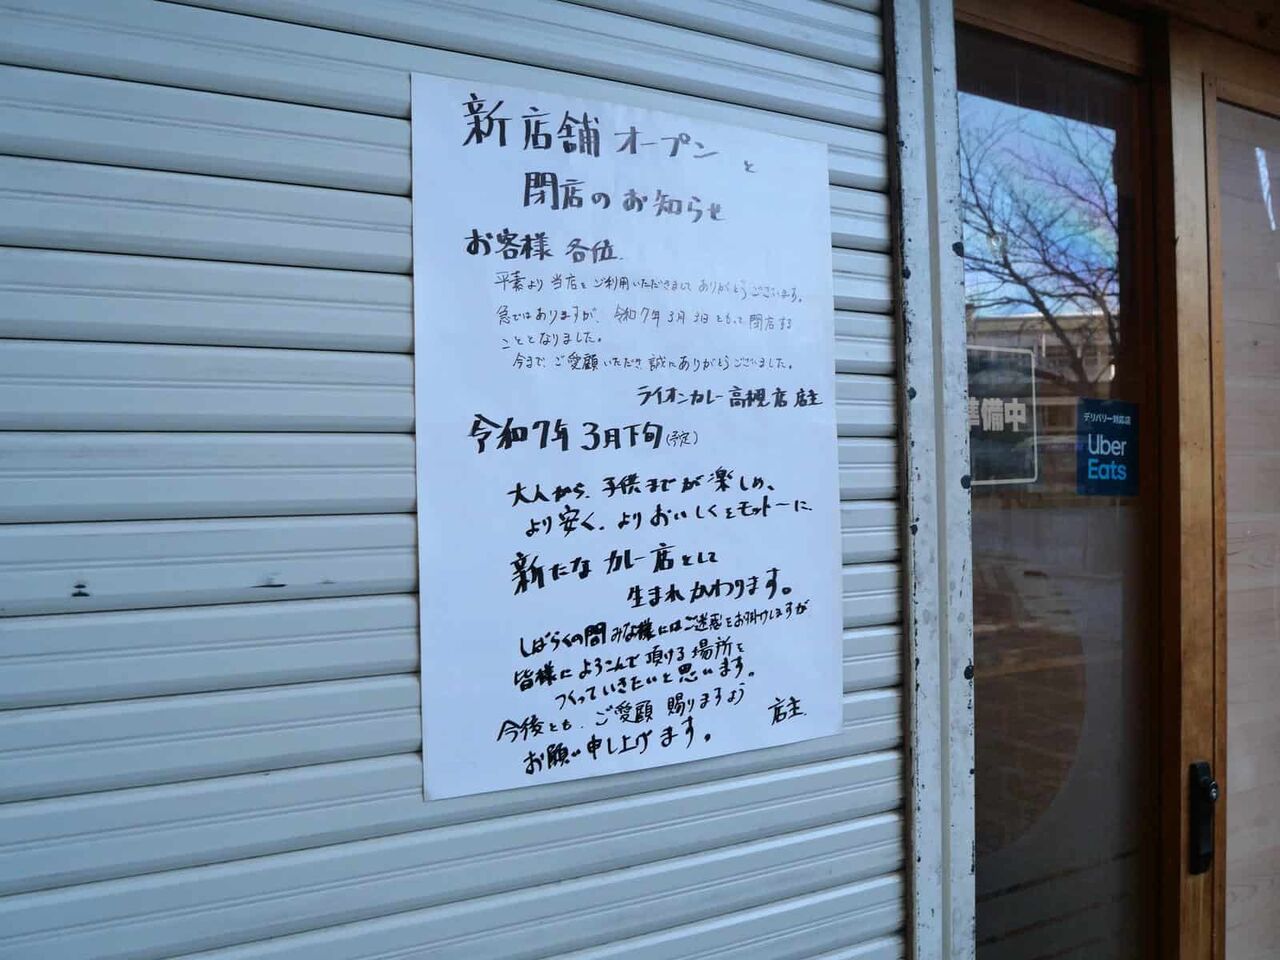 新店舗オープンと
閉店のお知らせ
お客様 各位
平素より当店をご利用いただきまして ありがとうございます。
急ではありますが、令和7年3月3日をもって閉店する
こととなりました。
今まで、ご愛顧いただき誠にありがとうございました。
ライオンカレー高槻店 店主
令和7年3月下旬(予定)
大人から、子供までが楽しめ、
より安く、よりおいしくをモットーに
新たなカレー店として
生まれかわります。
しばらくの間みな様にはご迷惑をお掛けしますが
皆様によろこんで頂ける場所を
つくっていきたいと思います。
今後とも、ご愛顧賜りますよう
お願い申し上げます。
店主
準備中
デリバリー対応店
Uber
Eats